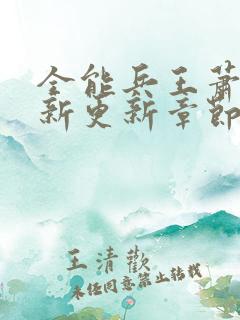 全能兵王萧
新更新章节
王清欢
未经同意禁止转载